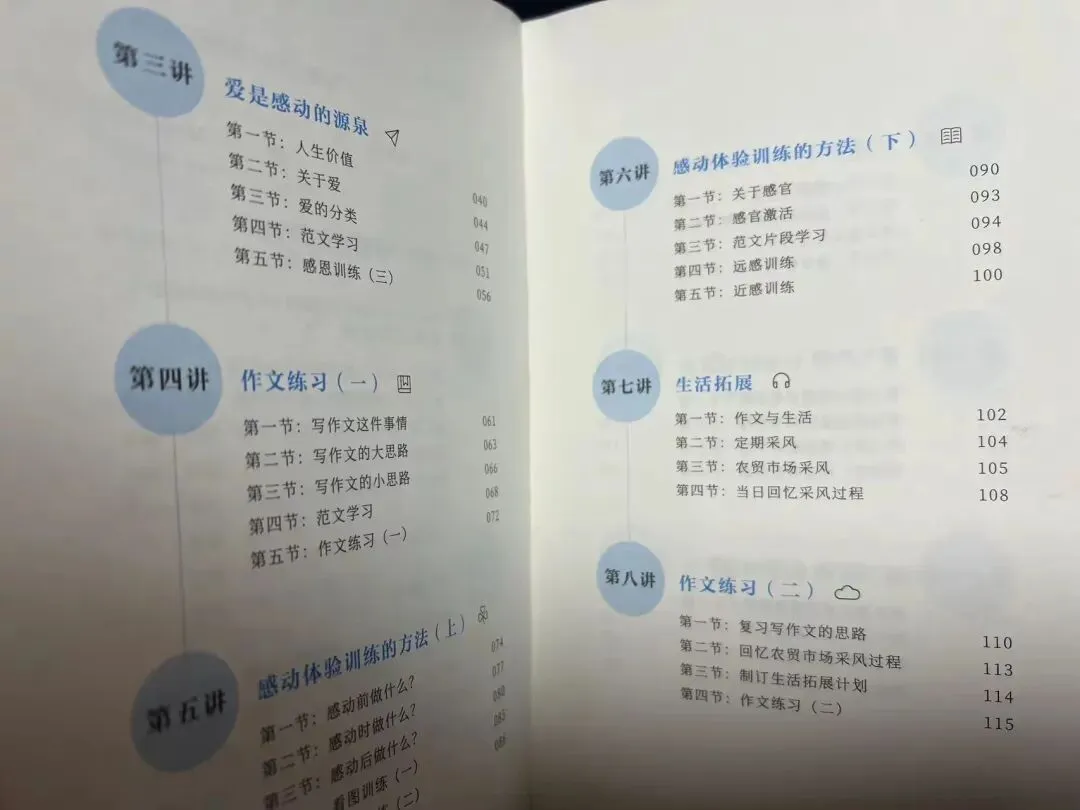 第三讲
爱是感动的源泉
第一节：人生价值 040
第二节：关于爱 044
第三节：爱的分类 047
第四节：范文学习 051
第五节：感恩训练（三） 056
第四讲
作文练习（一）
第一节：写作文这件事情 061
第二节：写作文的大思路 063
第三节：写作文的小思路 066
第四节：范文学习 068
第五节：作文练习（一） 072
第五讲
感动体验训练的方法（上）
第一节：感动前做什么？ 074
第二节：感动时做什么？ 077
第三节：感动后做什么？ 080
看图训练（一）
（二）
第六讲
感动体验训练的方法（下）
第一节：关于感官 090
第二节：感官激活 093
第三节：范文片段学习 094
第四节：远感训练 098
第五节：近感训练 100
第七讲
生活拓展
第一节：作文与生活 102
第二节：定期采风 104
第三节：农贸市场采风 105
第四节：当日回忆采风过程 108
第八讲
作文练习（二）
第一节：复习写作文的思路 110
第二节：回忆农贸市场采风过程 113
第三节：制订生活拓展计划 114
第四节：作文练习（二） 115